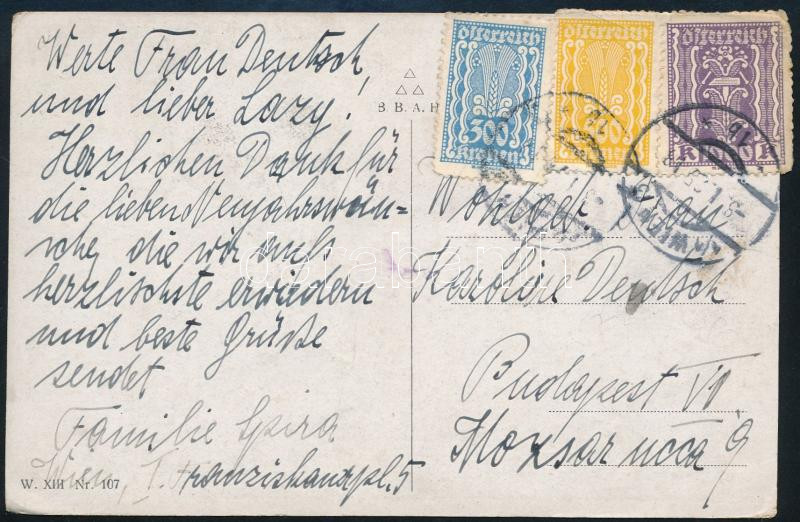 Werte Frau Deutsch,
und lieber Lazy!
Herzlichen Dank für
die lieben Neujahrswün=
sche, die wir aufs
herzlischste erwiedern
und beste Grüße
sendet
Familie Spira
Wien, I. Franziskanerpl. 5
W. XIII Nr. 107
B. B. A. H
österreich
300
kronen
österreich
kronen
österreich
WIEN
Wohlgeb. Frau
Karoline Deutsch
Budapest VI
Mozsar ucca 9
darabanth